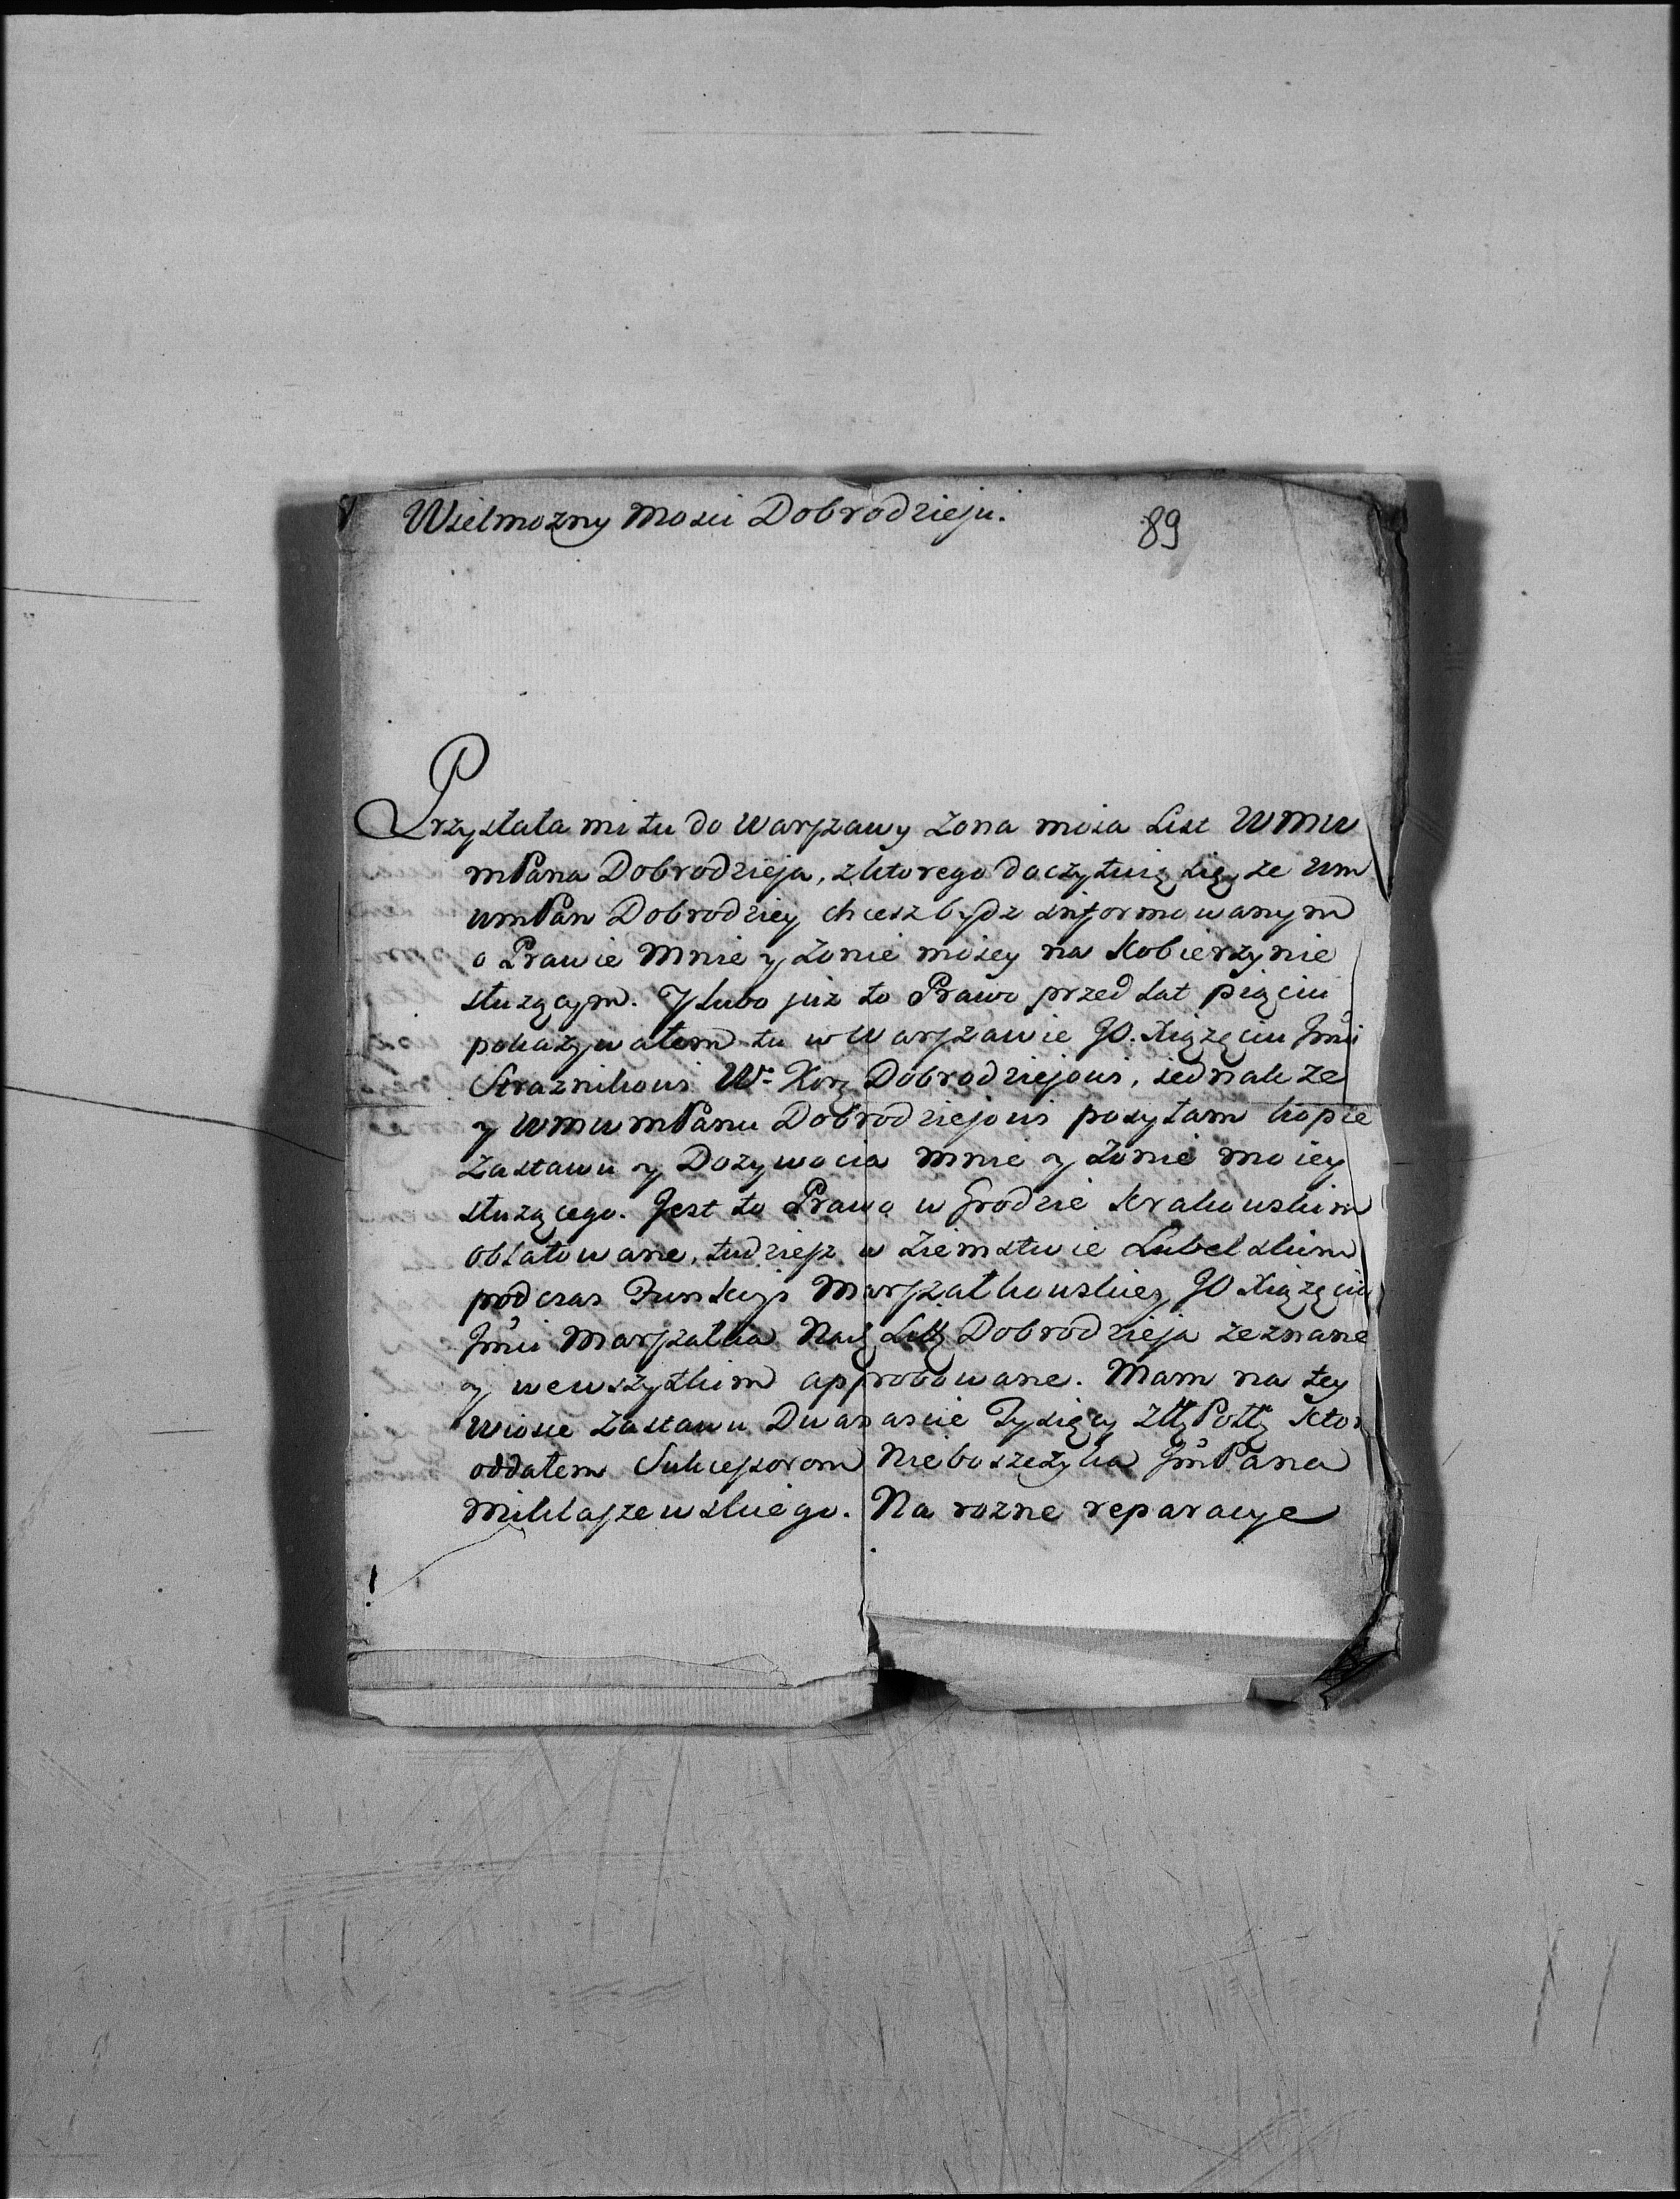 Wielmozny Mosci Dobrodzieju.
89
Przysłała mi tu do Warszawy Zona moia List WMW
mPana Dobrodzieja, z ktorego doczytuię się, ze WM
WmPan Dobrodziey chcesz bydz informowanym
o Prawie Mnie y Zonie moiey na Kobierzynie
słuzącym. Y lubo juz to Prawo przed lat pięciu
pokazywałem tu w Warszawie JO. Xiązęciu Jmci
Straznikowi W. Kor. Dobrodziejowi, iednak ze
y WMWmPanu Dobrodziejowi posyłam kopie
Zastawu y Dozywocia mnie y Zonie moiey
słuzącego. Jest to Prawo w Grodzie Krakowskim
oblatowane, tudziesz w Ziemstwie Lubelskim
podczas Funkcyi Marszałkowskiey JO Xiązęcia
Jmci Marszałka Dobrodzieja zeznane
y wewszystkim approbowane. Mam na tey
wiosce Zastawu Dwanascie Tysięcy Złł Poll Ktor
oddałem Sukcessorom Nieboszczyka JmPana
Mikłaszewskiego. Na rozne reparacye